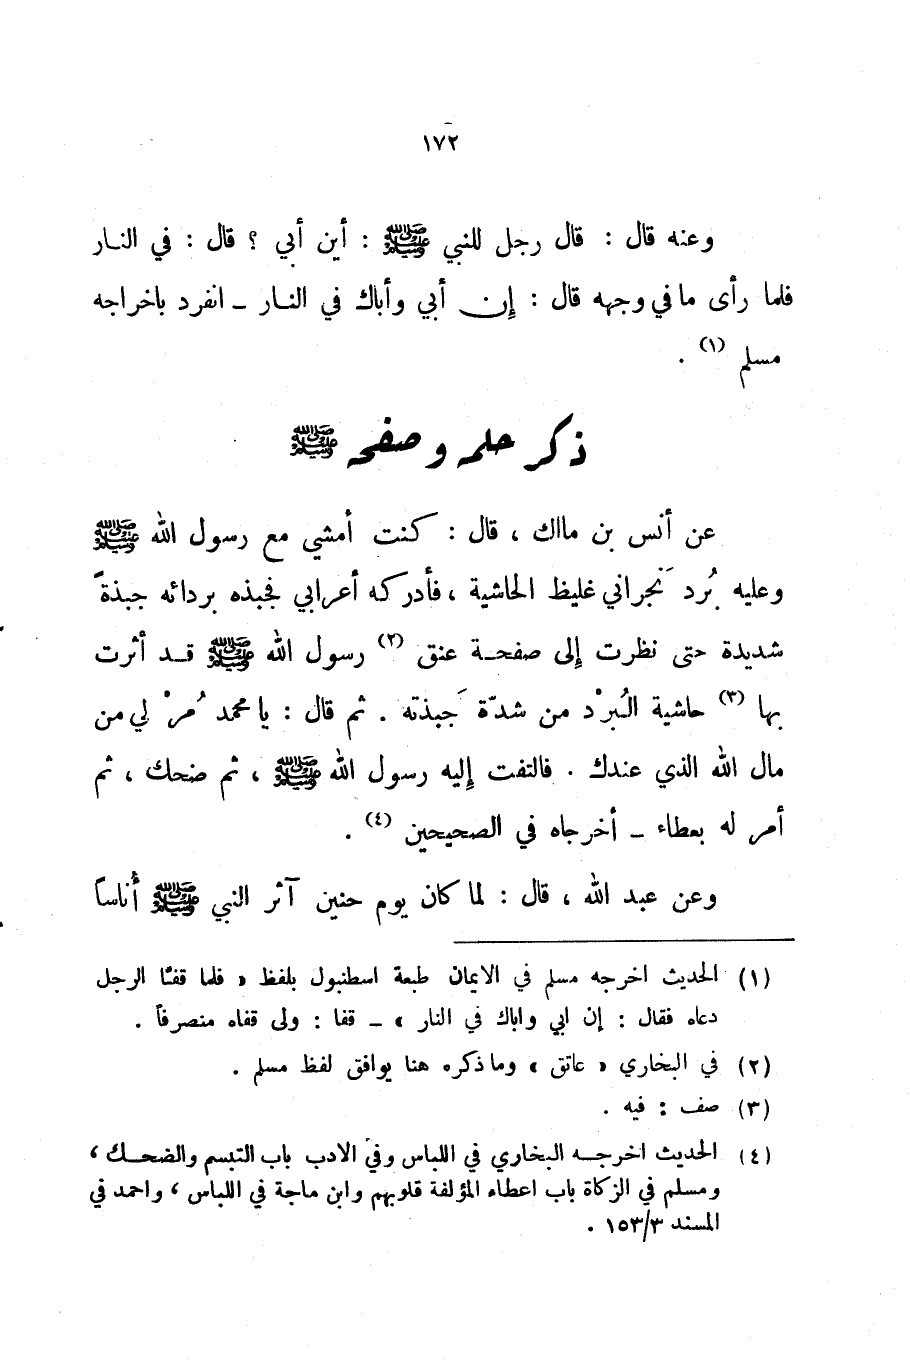 ١٧٢
وعنه قال : قال رجل للنبي ﷺ : أين أبي ؟ قال : في النـار
فلما رأى ما في وجهه قال : إن أبي وأباك في النـار ـ انفرد باخراجه
مسلم (١) .
ذكر حلمه وصفحه ﷺ
عن أنس بن مالك ، قال : كنت أمشي مع رسول الله ﷺ
وعليه بُرد نَجراني غليظ الحاشية ، فأدركه أعرابي فجبذه بردائه جبذةً
شديدة حتى نظرت إلى صفحـة عنق (٢) رسول الله ﷺ قـد أثرت
بها (٣) حاشية البُرْد من شدّة جَبذته . ثم قال : يا محمد مُرْ لي من
مال الله الذي عندك . فالتفت إليه رسول الله ﷺ ، ثم ضحك ، ثم
أمر له بعطاء ـ أخرجاه في الصحيحين (٤) .
وعن عبد الله ، قال : لما كان يوم حنين آثر النبي ﷺ أُناساً
(١) الحديث اخرجه مسلم في الايمان طبعة اسطنبول بلفظ « فلما قفـّا الرجل
دعاه فقال : إن ابي واباك في النار » ـ قفا : ولى قفاه منصرفاً .
(٢) في البخاري « عاتق » وما ذكره هنا يوافق لفظ مسلم .
(٣) صف : فيه .
(٤) الحديث اخرجـه البخاري في اللباس وفي الادب باب التبسم والضحـك ،
ومسلم في الزكاة باب اعطاء المؤلفة قلوبهم وابن ماجة في اللباس ، واحمد في
المسند ١٥٣/٣ .